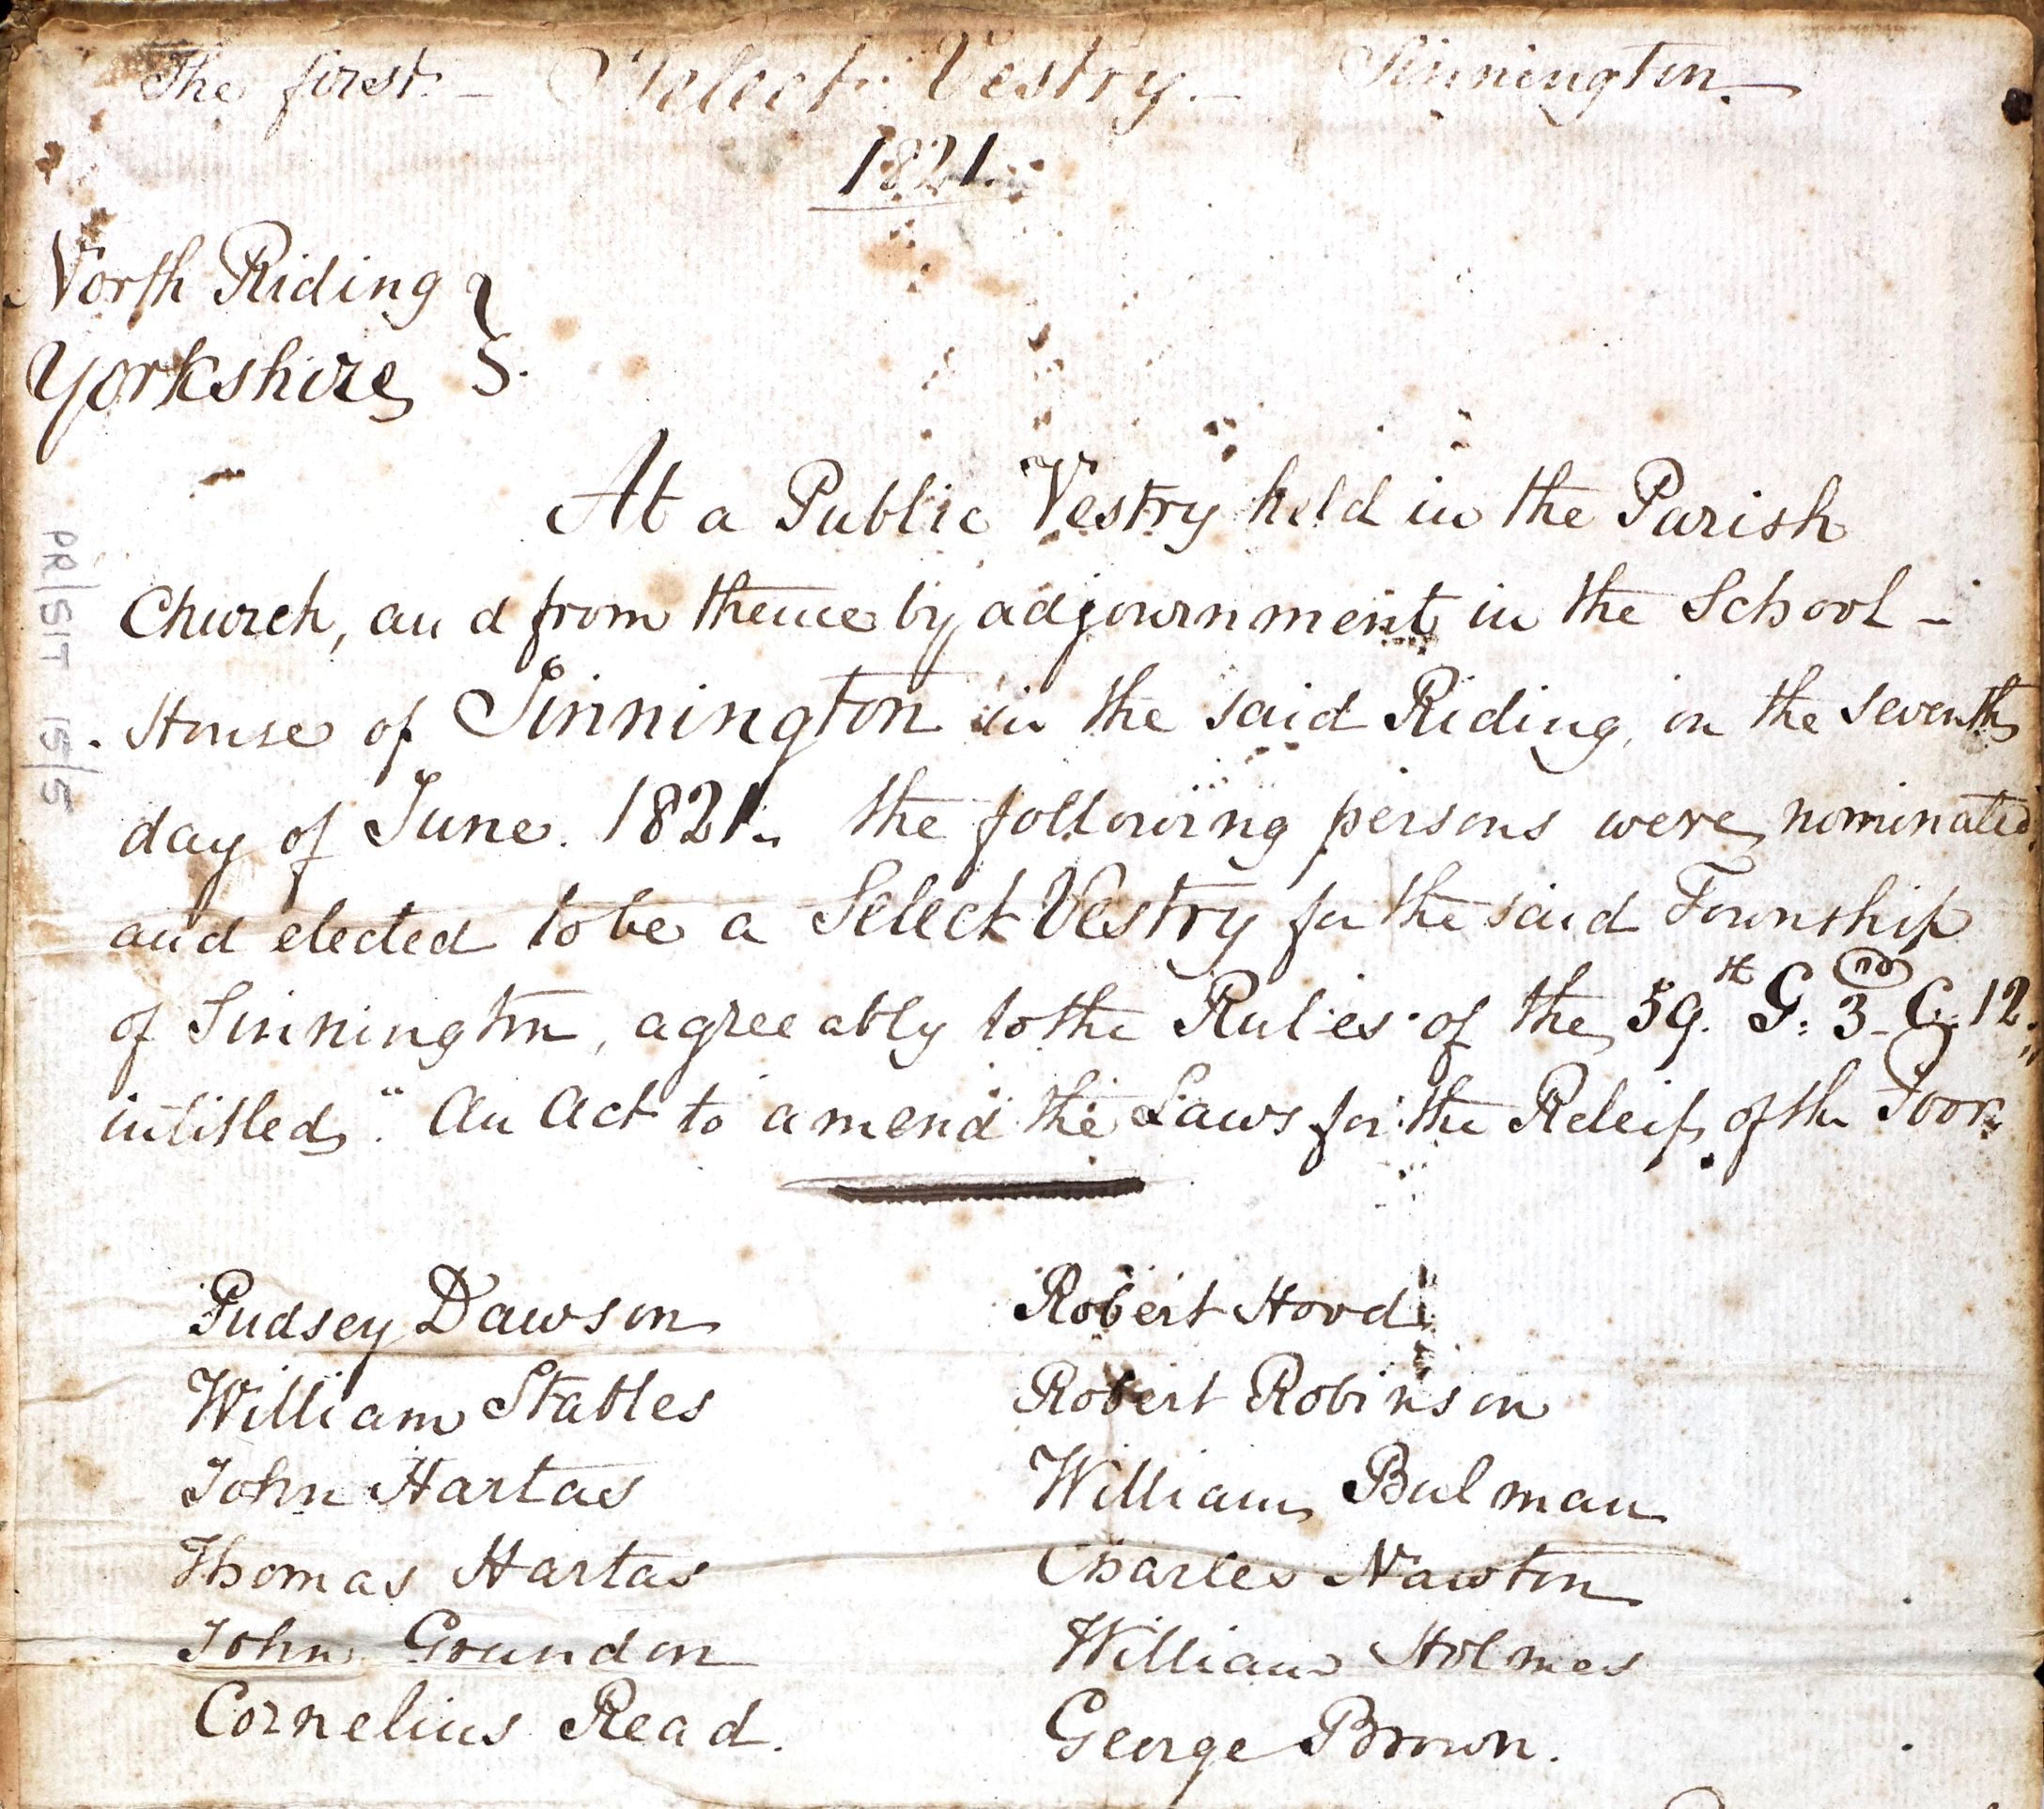 The first. – Select Vestry. – Sinnington.
1821.
North Riding }
Yorkshire }.
At a Public Vestry held in the Parish
Church, and from thence by adjournment in the School –
House of Sinnington in the said Riding, on the seventh
day of June. 1821. the following persons were nominated
and elected to be a Select Vestry for the said Township
of Sinnington, agreeably to the Rules of the 59.th G: 3rd C. 12.
intitled, "An Act to amend the Laws for the Releif of the Poor."
Pudsey Dawson
Robert Hood
William Stables
Robert Robinson
John Hartas
William Bulman
Thomas Hartas
Charles Nawton
John Grundon
William Holmes
Cornelius Read.
George Brown.
PR/SIT 15/5